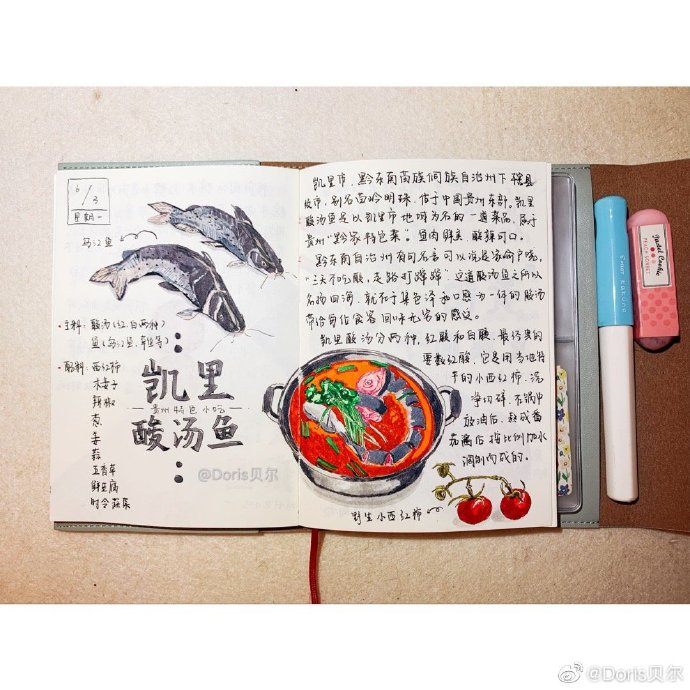 6/3
星期一
乌江鱼
主料：酸汤(红.白两种)
鱼(乌江鱼.草鱼等)
配料：西红柿
木姜子
辣椒
葱
姜
蒜
五香草
鲜豆腐
时令蔬菜
凯里
贵州特色小吃
酸汤鱼
@Doris贝尔
凯里市，黔东南苗族侗族自治州下辖县
级市，别名苗岭明珠，位于中国贵州东部。凯里
酸汤鱼是以凯里市地呀为名的一道菜品，属于
贵州“黔家特色菜”。鱼肉鲜美，酸辣可口。
黔东南自治州有句名言可以说是家俞户晓，
“三天不吃酸，走路打蹿蹿”这道酸汤鱼之所以
名扬四海，就在于集色泽和口感为一体的酸汤
带给每位食客回味无穷的感受。
凯里酸汤分两种，红酸和白酸，最厉害的
要数红酸，它是用当地特
产的小西红柿，洗
净切碎，在锅中
放油后，熬成番
茄酱后按比例加水
调制而成的。
野生小西红柿
PILOT kakuno
@Doris贝尔